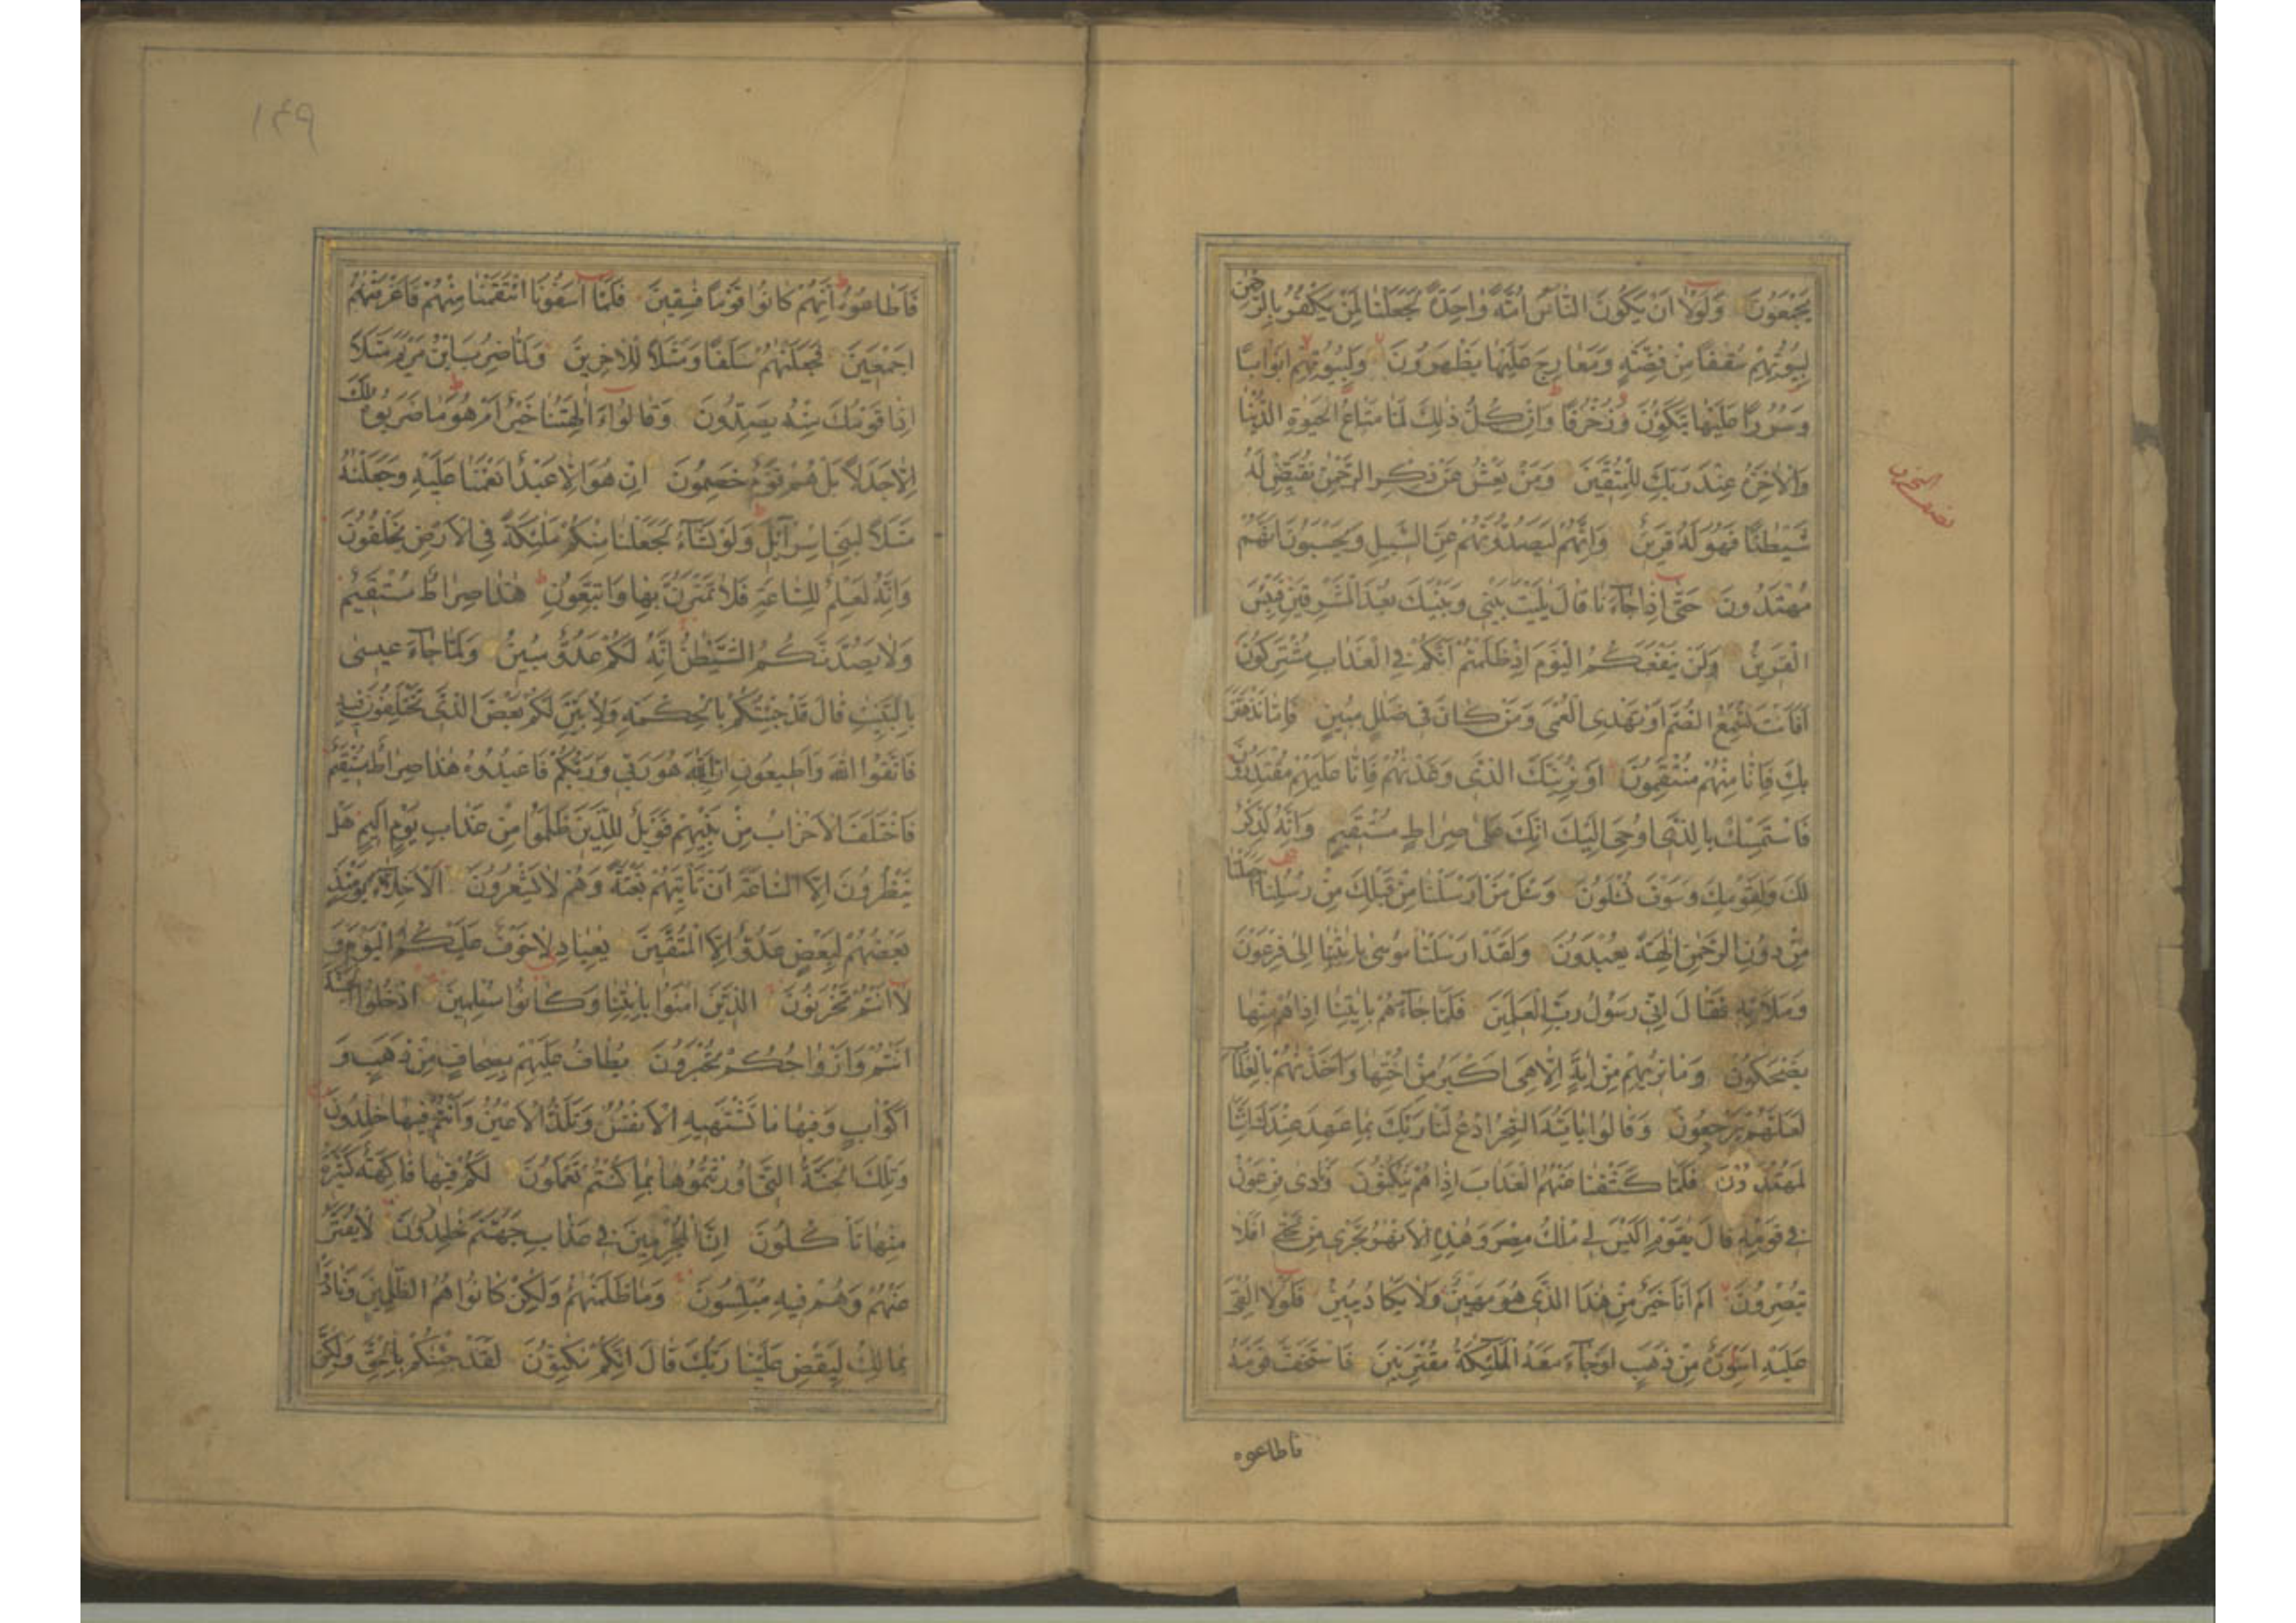 يَجْمَعُونَ وَلَوْلَا اَنْ يَكُونَ النَّاسُ اُمَّةً وَاحِدَةً لَجَعَلْنَا لِمَنْ يَكْفُرُ بِالرَّحْمٰنِ
لِبُيُوتِهِمْ سُقُفًا مِنْ فِضَّةٍ وَمَعَارِجَ عَلَيْهَا يَظْهَرُونَ وَلِبُيُوتِهِمْ اَبْوَابًا
وَسُرُرًا عَلَيْهَا يَتَّكِؤُنَ وَزُخْرُفًا وَاِنْ كُلُّ ذٰلِكَ لَمَّا مَتَاعُ الْحَيٰوةِ الدُّنْيَا
وَالْاٰخِرَةُ عِنْدَ رَبِّكَ لِلْمُتَّقِينَ وَمَنْ يَعْشُ عَنْ ذِكْرِ الرَّحْمٰنِ نُقَيِّضْ لَهُ
شَيْطٰنًا فَهُوَ لَهُ قَرِينٌ وَاِنَّهُمْ لَيَصُدُّونَهُمْ عَنِ السَّبِيلِ وَيَحْسَبُونَ اَنَّهُمْ
مُهْتَدُونَ حَتّٰى اِذَا جَآءَنَا قَالَ يٰلَيْتَ بَيْنِي وَبَيْنَكَ بُعْدَ الْمَشْرِقَيْنِ فَبِئْسَ
الْقَرِينُ وَلَنْ يَنْفَعَكُمُ الْيَوْمَ اِذْ ظَلَمْتُمْ اَنَّكُمْ فِي الْعَذَابِ مُشْتَرِكُونَ
اَفَاَنْتَ تُسْمِعُ الصُّمَّ اَوْ تَهْدِي الْعُمْيَ وَمَنْ كَانَ فِي ضَلٰلٍ مُبِينٍ فَاِمَّا نَذْهَبَنَّ
بِكَ فَاِنَّا مِنْهُمْ مُنْتَقِمُونَ اَوْ نُرِيَنَّكَ الَّذِي وَعَدْنٰهُمْ فَاِنَّا عَلَيْهِمْ مُقْتَدِرُونَ
فَاسْتَمْسِكْ بِالَّذِي اُوحِيَ اِلَيْكَ اِنَّكَ عَلٰى صِرَاطٍ مُسْتَقِيمٍ وَاِنَّهُ لَذِكْرٌ
لَكَ وَلِقَوْمِكَ وَسَوْفَ تُسْئَلُونَ وَسْئَلْ مَنْ اَرْسَلْنَا مِنْ قَبْلِكَ مِنْ رُسُلِنَا اَجَعَلْنَا
مِنْ دُونِ الرَّحْمٰنِ اٰلِهَةً يُعْبَدُونَ وَلَقَدْ اَرْسَلْنَا مُوسٰى بِاٰيٰتِنَا اِلٰى فِرْعَوْنَ
وَمَلَائِهِ فَقَالَ اِنِّي رَسُولُ رَبِّ الْعٰلَمِينَ فَلَمَّا جَآءَهُمْ بِاٰيٰتِنَا اِذَا هُمْ مِنْهَا
يَضْحَكُونَ وَمَا نُرِيهِمْ مِنْ اٰيَةٍ اِلَّا هِيَ اَكْبَرُ مِنْ اُخْتِهَا وَاَخَذْنٰهُمْ بِالْعَذَابِ
لَعَلَّهُمْ يَرْجِعُونَ وَقَالُوا يٰاَيُّهَ السّٰحِرُ ادْعُ لَنَا رَبَّكَ بِمَا عَهِدَ عِنْدَكَ اِنَّنَا
لَمُهْتَدُونَ فَلَمَّا كَشَفْنَا عَنْهُمُ الْعَذَابَ اِذَا هُمْ يَنْكُثُونَ وَنَادٰى فِرْعَوْنُ
فِي قَوْمِهِ قَالَ يٰقَوْمِ اَلَيْسَ لِي مُلْكُ مِصْرَ وَهٰذِهِ الْاَنْهٰرُ تَجْرِي مِنْ تَحْتِي اَفَلَا
تُبْصِرُونَ اَمْ اَنَا خَيْرٌ مِنْ هٰذَا الَّذِي هُوَ مَهِينٌ وَلَا يَكَادُ يُبِينُ فَلَوْلَا اُلْقِيَ
عَلَيْهِ اَسْوِرَةٌ مِنْ ذَهَبٍ اَوْ جَآءَ مَعَهُ الْمَلٰٓئِكَةُ مُقْتَرِنِينَ فَاسْتَخَفَّ قَوْمَهُ
فاطاعوه
١٤٩
فَاَطَاعُوهُ اِنَّهُمْ كَانُوا قَوْمًا فٰسِقِينَ فَلَمَّا اٰسَفُونَا انْتَقَمْنَا مِنْهُمْ فَاَغْرَقْنٰهُمْ
اَجْمَعِينَ فَجَعَلْنٰهُمْ سَلَفًا وَمَثَلًا لِلْاٰخِرِينَ وَلَمَّا ضُرِبَ ابْنُ مَرْيَمَ مَثَلًا
اِذَا قَوْمُكَ مِنْهُ يَصِدُّونَ وَقَالُوا ءَاٰلِهَتُنَا خَيْرٌ اَمْ هُوَ مَا ضَرَبُوهُ لَكَ
اِلَّا جَدَلًا بَلْ هُمْ قَوْمٌ خَصِمُونَ اِنْ هُوَ اِلَّا عَبْدٌ اَنْعَمْنَا عَلَيْهِ وَجَعَلْنٰهُ
مَثَلًا لِبَنِي اِسْرَآئِيلَ وَلَوْ نَشَآءُ لَجَعَلْنَا مِنْكُمْ مَلٰٓئِكَةً فِي الْاَرْضِ يَخْلُفُونَ
وَاِنَّهُ لَعِلْمٌ لِلسَّاعَةِ فَلَا تَمْتَرُنَّ بِهَا وَاتَّبِعُونِ هٰذَا صِرَاطٌ مُسْتَقِيمٌ
وَلَا يَصُدَّنَّكُمُ الشَّيْطٰنُ اِنَّهُ لَكُمْ عَدُوٌّ مُبِينٌ وَلَمَّا جَآءَ عِيسٰى
بِالْبَيِّنٰتِ قَالَ قَدْ جِئْتُكُمْ بِالْحِكْمَةِ وَلِاُبَيِّنَ لَكُمْ بَعْضَ الَّذِي تَخْتَلِفُونَ فِيهِ
فَاتَّقُوا اللّٰهَ وَاَطِيعُونِ اِنَّ اللّٰهَ هُوَ رَبِّي وَرَبُّكُمْ فَاعْبُدُوهُ هٰذَا صِرَاطٌ مُسْتَقِيمٌ
فَاخْتَلَفَ الْاَحْزَابُ مِنْ بَيْنِهِمْ فَوَيْلٌ لِلَّذِينَ ظَلَمُوا مِنْ عَذَابِ يَوْمٍ اَلِيمٍ هَلْ
يَنْظُرُونَ اِلَّا السَّاعَةَ اَنْ تَأْتِيَهُمْ بَغْتَةً وَهُمْ لَا يَشْعُرُونَ اَلْاَخِلَّآءُ يَوْمَئِذٍ
بَعْضُهُمْ لِبَعْضٍ عَدُوٌّ اِلَّا الْمُتَّقِينَ يٰعِبَادِ لَا خَوْفٌ عَلَيْكُمُ الْيَوْمَ وَ
لَا اَنْتُمْ تَحْزَنُونَ الَّذِينَ اٰمَنُوا بِاٰيٰتِنَا وَكَانُوا مُسْلِمِينَ اُدْخُلُوا الْجَنَّةَ
اَنْتُمْ وَاَزْوَاجُكُمْ تُحْبَرُونَ يُطَافُ عَلَيْهِمْ بِصِحَافٍ مِنْ ذَهَبٍ وَ
اَكْوَابٍ وَفِيهَا مَا تَشْتَهِيهِ الْاَنْفُسُ وَتَلَذُّ الْاَعْيُنُ وَاَنْتُمْ فِيهَا خٰلِدُونَ
وَتِلْكَ الْجَنَّةُ الَّتِي اُورِثْتُمُوهَا بِمَا كُنْتُمْ تَعْمَلُونَ لَكُمْ فِيهَا فَاكِهَةٌ كَثِيرَةٌ
مِنْهَا تَأْكُلُونَ اِنَّ الْمُجْرِمِينَ فِي عَذَابِ جَهَنَّمَ خٰلِدُونَ لَا يُفَتَّرُ
عَنْهُمْ وَهُمْ فِيهِ مُبْلِسُونَ وَمَا ظَلَمْنٰهُمْ وَلٰكِنْ كَانُوا هُمُ الظّٰلِمِينَ وَنَادَوْا
يٰمَالِكُ لِيَقْضِ عَلَيْنَا رَبُّكَ قَالَ اِنَّكُمْ مٰكِثُونَ لَقَدْ جِئْنٰكُمْ بِالْحَقِّ وَلٰكِنَّ